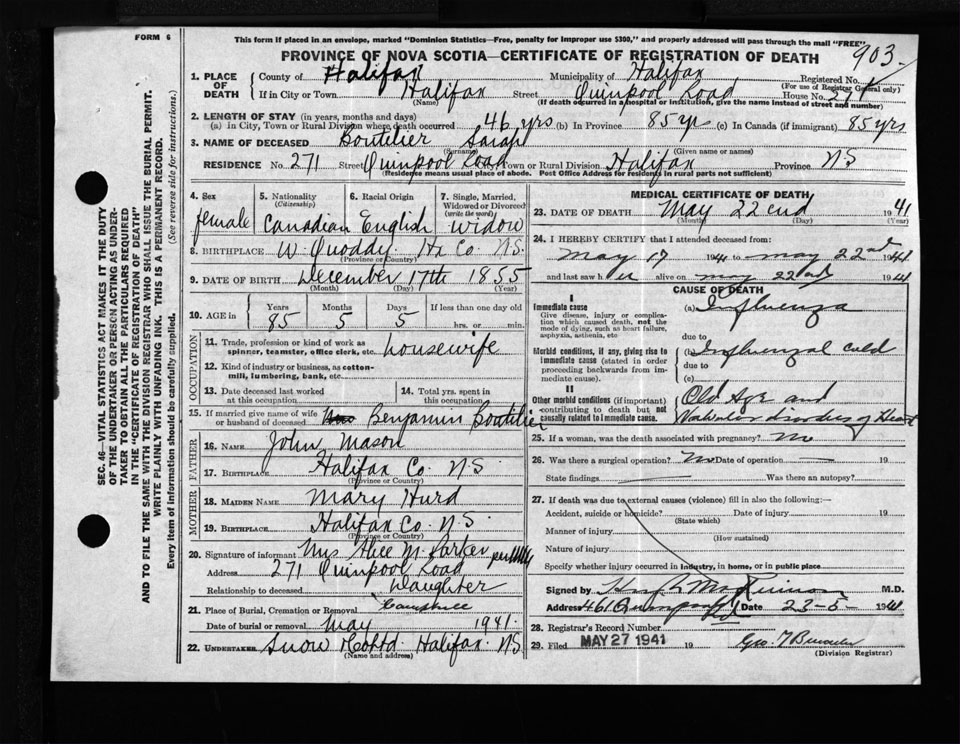 FORM 6
This form if placed in an envelope, marked "Dominion Statistics—Free, penalty for improper use $300," and properly addressed will pass through the mail "FREE"
PROVINCE OF NOVA SCOTIA—CERTIFICATE OF REGISTRATION OF DEATH 903
1. PLACE OF DEATH County of Halifax Municipality of Halifax Registered No.
(For use of Registrar General only)
If in City or Town Halifax Street Quinpool Road House No. 271
(Name) (If death occurred in a hospital or institution, give the name instead of street and number)
2. LENGTH OF STAY (in years, months and days)
(a) In City, Town or Rural Division where death occurred 46 yrs (b) In Province 85 yr (c) In Canada (if immigrant) 85 yrs
3. NAME OF DECEASED Boutilier Sarah
(Surname) (Given name or names)
RESIDENCE No. 271 Street Quinpool Road City, Town or Rural Division Halifax Province NS
(Residence means usual place of abode. Post Office Address for residents in rural parts not sufficient)
4. Sex female
5. Nationality (Citizenship) Canadian
6. Racial Origin English
7. Single, Married, Widowed or Divorced (write the word) widow
8. BIRTHPLACE W. Quoddy. Hx Co. N.S.
(Province or Country)
9. DATE OF BIRTH December 17th 1855
(Month) (Day) (Year)
10. AGE in Years 85 Months 5 Days 5 If less than one day old
hrs. or min.
OCCUPATION
11. Trade, profession or kind of work as spinner, teamster, office clerk, etc. housewife
12. Kind of industry or business, as cotton-mill, lumbering, bank, etc.
13. Date deceased last worked at this occupation
14. Total yrs. spent in this occupation
15. If married give name of wife or husband of deceased Benjamin Boutilier
FATHER
16. NAME John Mason
17. BIRTHPLACE Halifax Co. N.S.
(Province or Country)
MOTHER
18. MAIDEN NAME Mary Hurd
19. BIRTHPLACE Halifax Co. N.S.
(Province or Country)
20. Signature of informant Mrs Alice M. Parker
Address 271 Quinpool Road
Relationship to deceased Daughter
21. Place of Burial, Cremation or Removal Camphill
Date of burial or removal May 1941.
22. UNDERTAKER Snow & Co Ltd Halifax NS
(Name and address)
MEDICAL CERTIFICATE OF DEATH
23. DATE OF DEATH May 22end 1941
(Month) (Day)
24. I HEREBY CERTIFY that I attended deceased from:
May 17 1941 to May 22nd 1941
and last saw her alive on May 22nd 1941
CAUSE OF DEATH
I
Immediate cause
Give disease, injury or complication which caused death, not the mode of dying, such as heart failure, asphyxia, asthenia, etc
(a) Influenza
due to
Morbid conditions, if any, giving rise to immediate cause (stated in order proceeding backwards from immediate cause).
(b) Influenzal cold
due to
(c)
II
Other morbid conditions (if important) contributing to death but not causally related to immediate cause.
Old Age and
Valvular disorders of Heart
25. If a woman, was the death associated with pregnancy? No
26. Was there a surgical operation? No Date of operation — 19
State findings Was there an autopsy?
27. If death was due to external causes (violence) fill in also the following:—
Accident, suicide or homicide? Date of injury 19
(State which)
Manner of injury
(How sustained)
Nature of injury
Specify whether injury occurred in industry, in home, or in public place
Signed by M.D.
Address 461 Quinpool Rd Date 23-5-1941
28. Registrar's Record Number
29. Filed MAY 27 1941 19
(Division Registrar)
SEC. 46—VITAL STATISTICS ACT MAKES IT THE DUTY OF THE UNDERTAKER OR PERSON ACTING AS UNDERTAKER TO OBTAIN ALL THE PARTICULARS REQUIRED IN THE "CERTIFICATE OF REGISTRATION OF DEATH"
AND TO FILE THE SAME WITH THE DIVISION REGISTRAR WHO SHALL ISSUE THE BURIAL PERMIT.
WRITE PLAINLY WITH UNFADING INK. THIS IS A PERMANENT RECORD.
Every item of information should be carefully supplied. (See reverse side for instructions.)